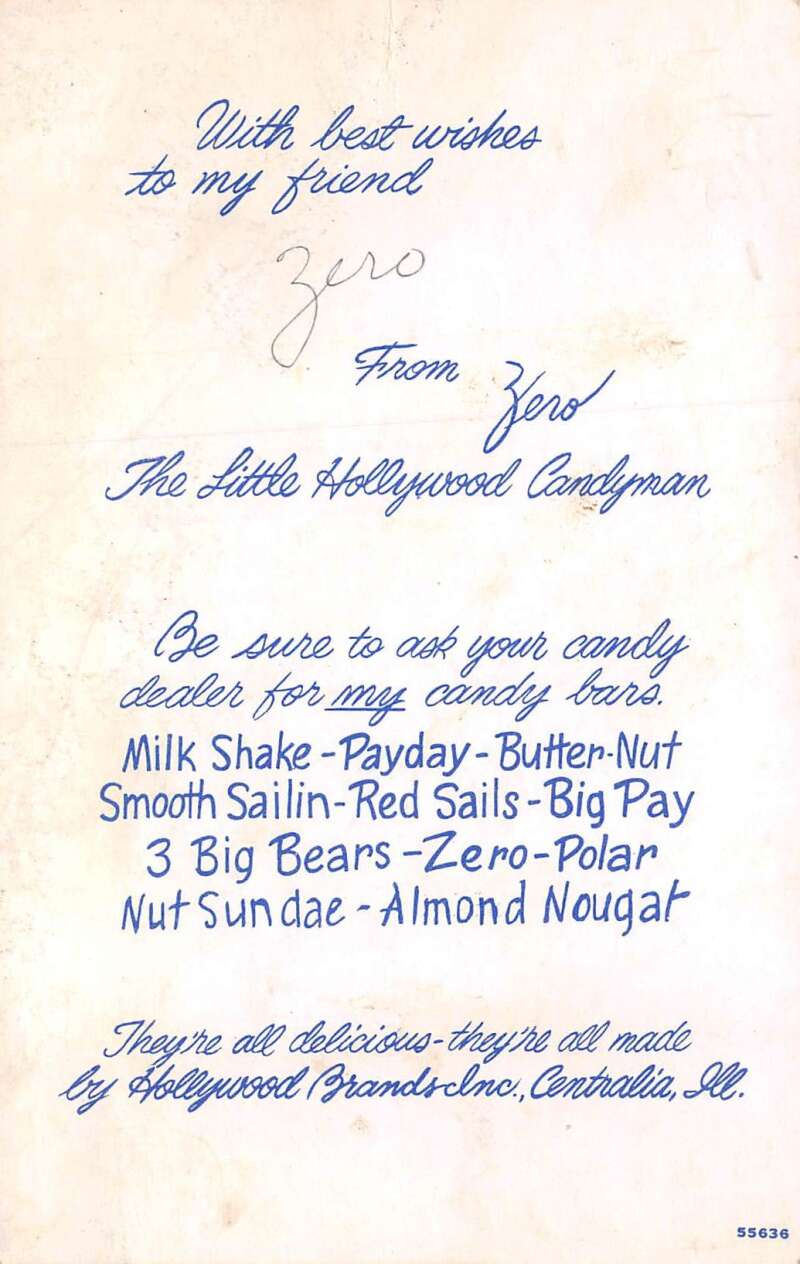 With best wishes
to my friend
Zero
From Zero
The Little Hollywood Candyman
Be sure to ask your candy
dealer for my candy bars.
Milk Shake - Payday - Butter-Nut
Smooth Sailin - Red Sails - Big Pay
3 Big Bears - Zero - Polar
Nut Sundae - Almond Nougat
They're all delicious - they're all made
by Hollywood Brands Inc., Centralia, Ill.
55636